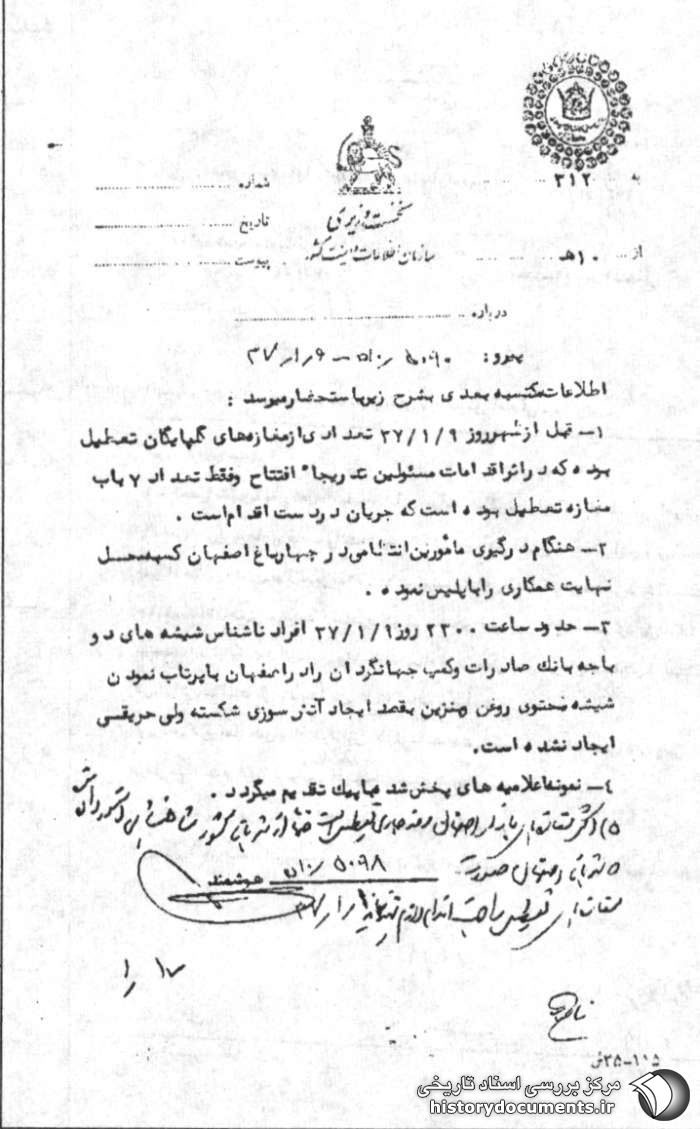 به ۳۱۲
شماره
نخست وزیری
تاریخ
سازمان اطلاعات و امنیت کشور
از ۱۰ هـ
پیوست
درباره
پیرو: ۵۰۹۰ / ۱۰ هـ - ۳۷/۱/۹
اطلاعات مکتسبه بعدی بشرح زیر باستحضار میرسد :
۱- قبل از ظهر روز ۳۷/۱/۹ تعدادی از مغازه‌های گلپایگان تعطیل
بوده که در اثر اقدامات مسئولین تدریجاً افتتاح و فقط تعداد ۷ باب
مغازه تعطیل بوده است که جریان در دست اقدام است .
۲- هنگام درگیری مأمورین انتظامی در چهارباغ اصفهان کسبه محل
نهایت همکاری را با پلیس نموده .
۳- حدود ساعت ۲۳۰۰ روز ۳۷/۱/۹ افراد ناشناس شیشه های دو
باجه بانک صادرات وکمپ جهانگردان را در اصفهان با پرتاب نمودن
شیشه محتوی روغن و بنزین بقصد ایجاد آتش سوزی شکسته ولی حریقی
ایجاد نشده است.
۴- نمونه اعلامیه های پخش شده با پیک تقدیم میگردد .
۵) اکثر مغازه‌های بازار اصفهان
۵۰۹۸ / ۱۰ هـ هوشمند
۱۷ / ۱
۱۱۵-۳۵ ش
مرکز بررسی اسناد تاریخی
historydocuments.ir